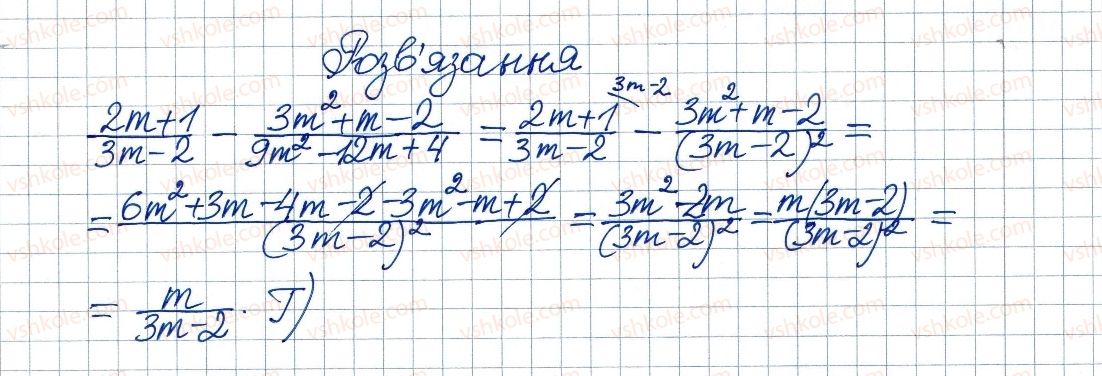 Розв'язання
\frac{2m+1}{3m-2} - \frac{3m^2+m-2}{9m^2-12m+4} = \frac{2m+1}{3m-2}^{3m-2} - \frac{3m^2+m-2}{(3m-2)^2} =
= \frac{6m^2+3m-4m-2-3m^2-m+2}{(3m-2)^2} = \frac{3m^2-2m}{(3m-2)^2} = \frac{m(3m-2)}{(3m-2)^2} =
= \frac{m}{3m-2}. Г)
vshkole.com